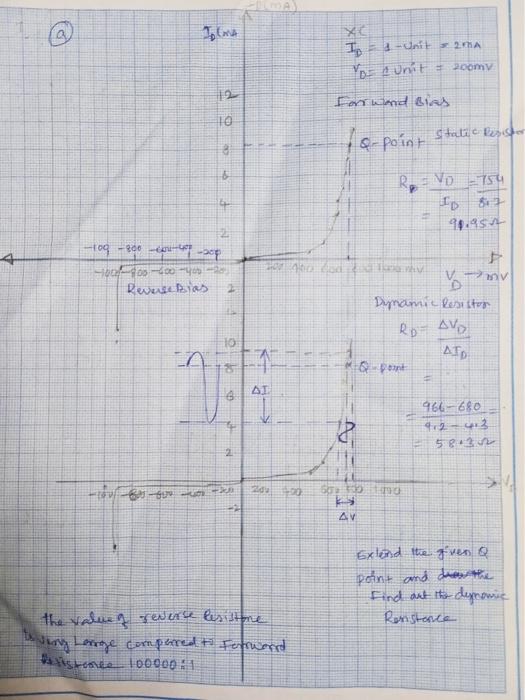 (a)
I_D (mA
XC
I_D = 1-Unit = 2mA
V_D = 1 Unit = 200mV
Forward Bias
12
10
8
6
4
2
Q-point
Static Resistor
R_D = V_D / I_D = 754 / 8.2
= 91.95Ω
-600
-200
200 400 600 800 1000 mV
-800 -600 -400 -200
Reverse Bias
V_D → mV
2
Dynamic Resistor
R_D = ΔV_D / ΔI_D
10
8
6
4
2
ΔI
Q-point
=
= 966-680 / 9.2-4.3 =
= 58.3Ω
-800 -600 -400 -200
200 400 600 800 1000
-2
ΔV
Extend the given Q
point and the
Find out the dynamic
Resistance
The value of reverse Resistance
is very Large compared to Forward
Resistance 100000:1